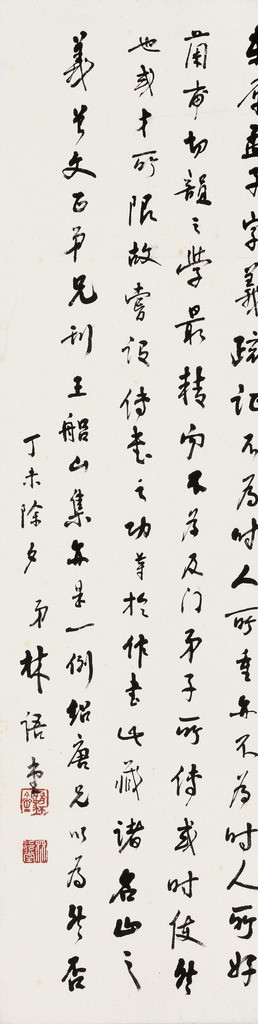 東原孟子字義疏证不為时人所重亦不為时人所好
蘭甫切韻之學最精而不為及门弟子所傳或时使然
也或才所限故嘗說傳書之功等於作書此藏諸名山之
義曾文正弟兄刊王船山集亦是一例紹唐兄以為然否
丁未除夕 弟林語堂